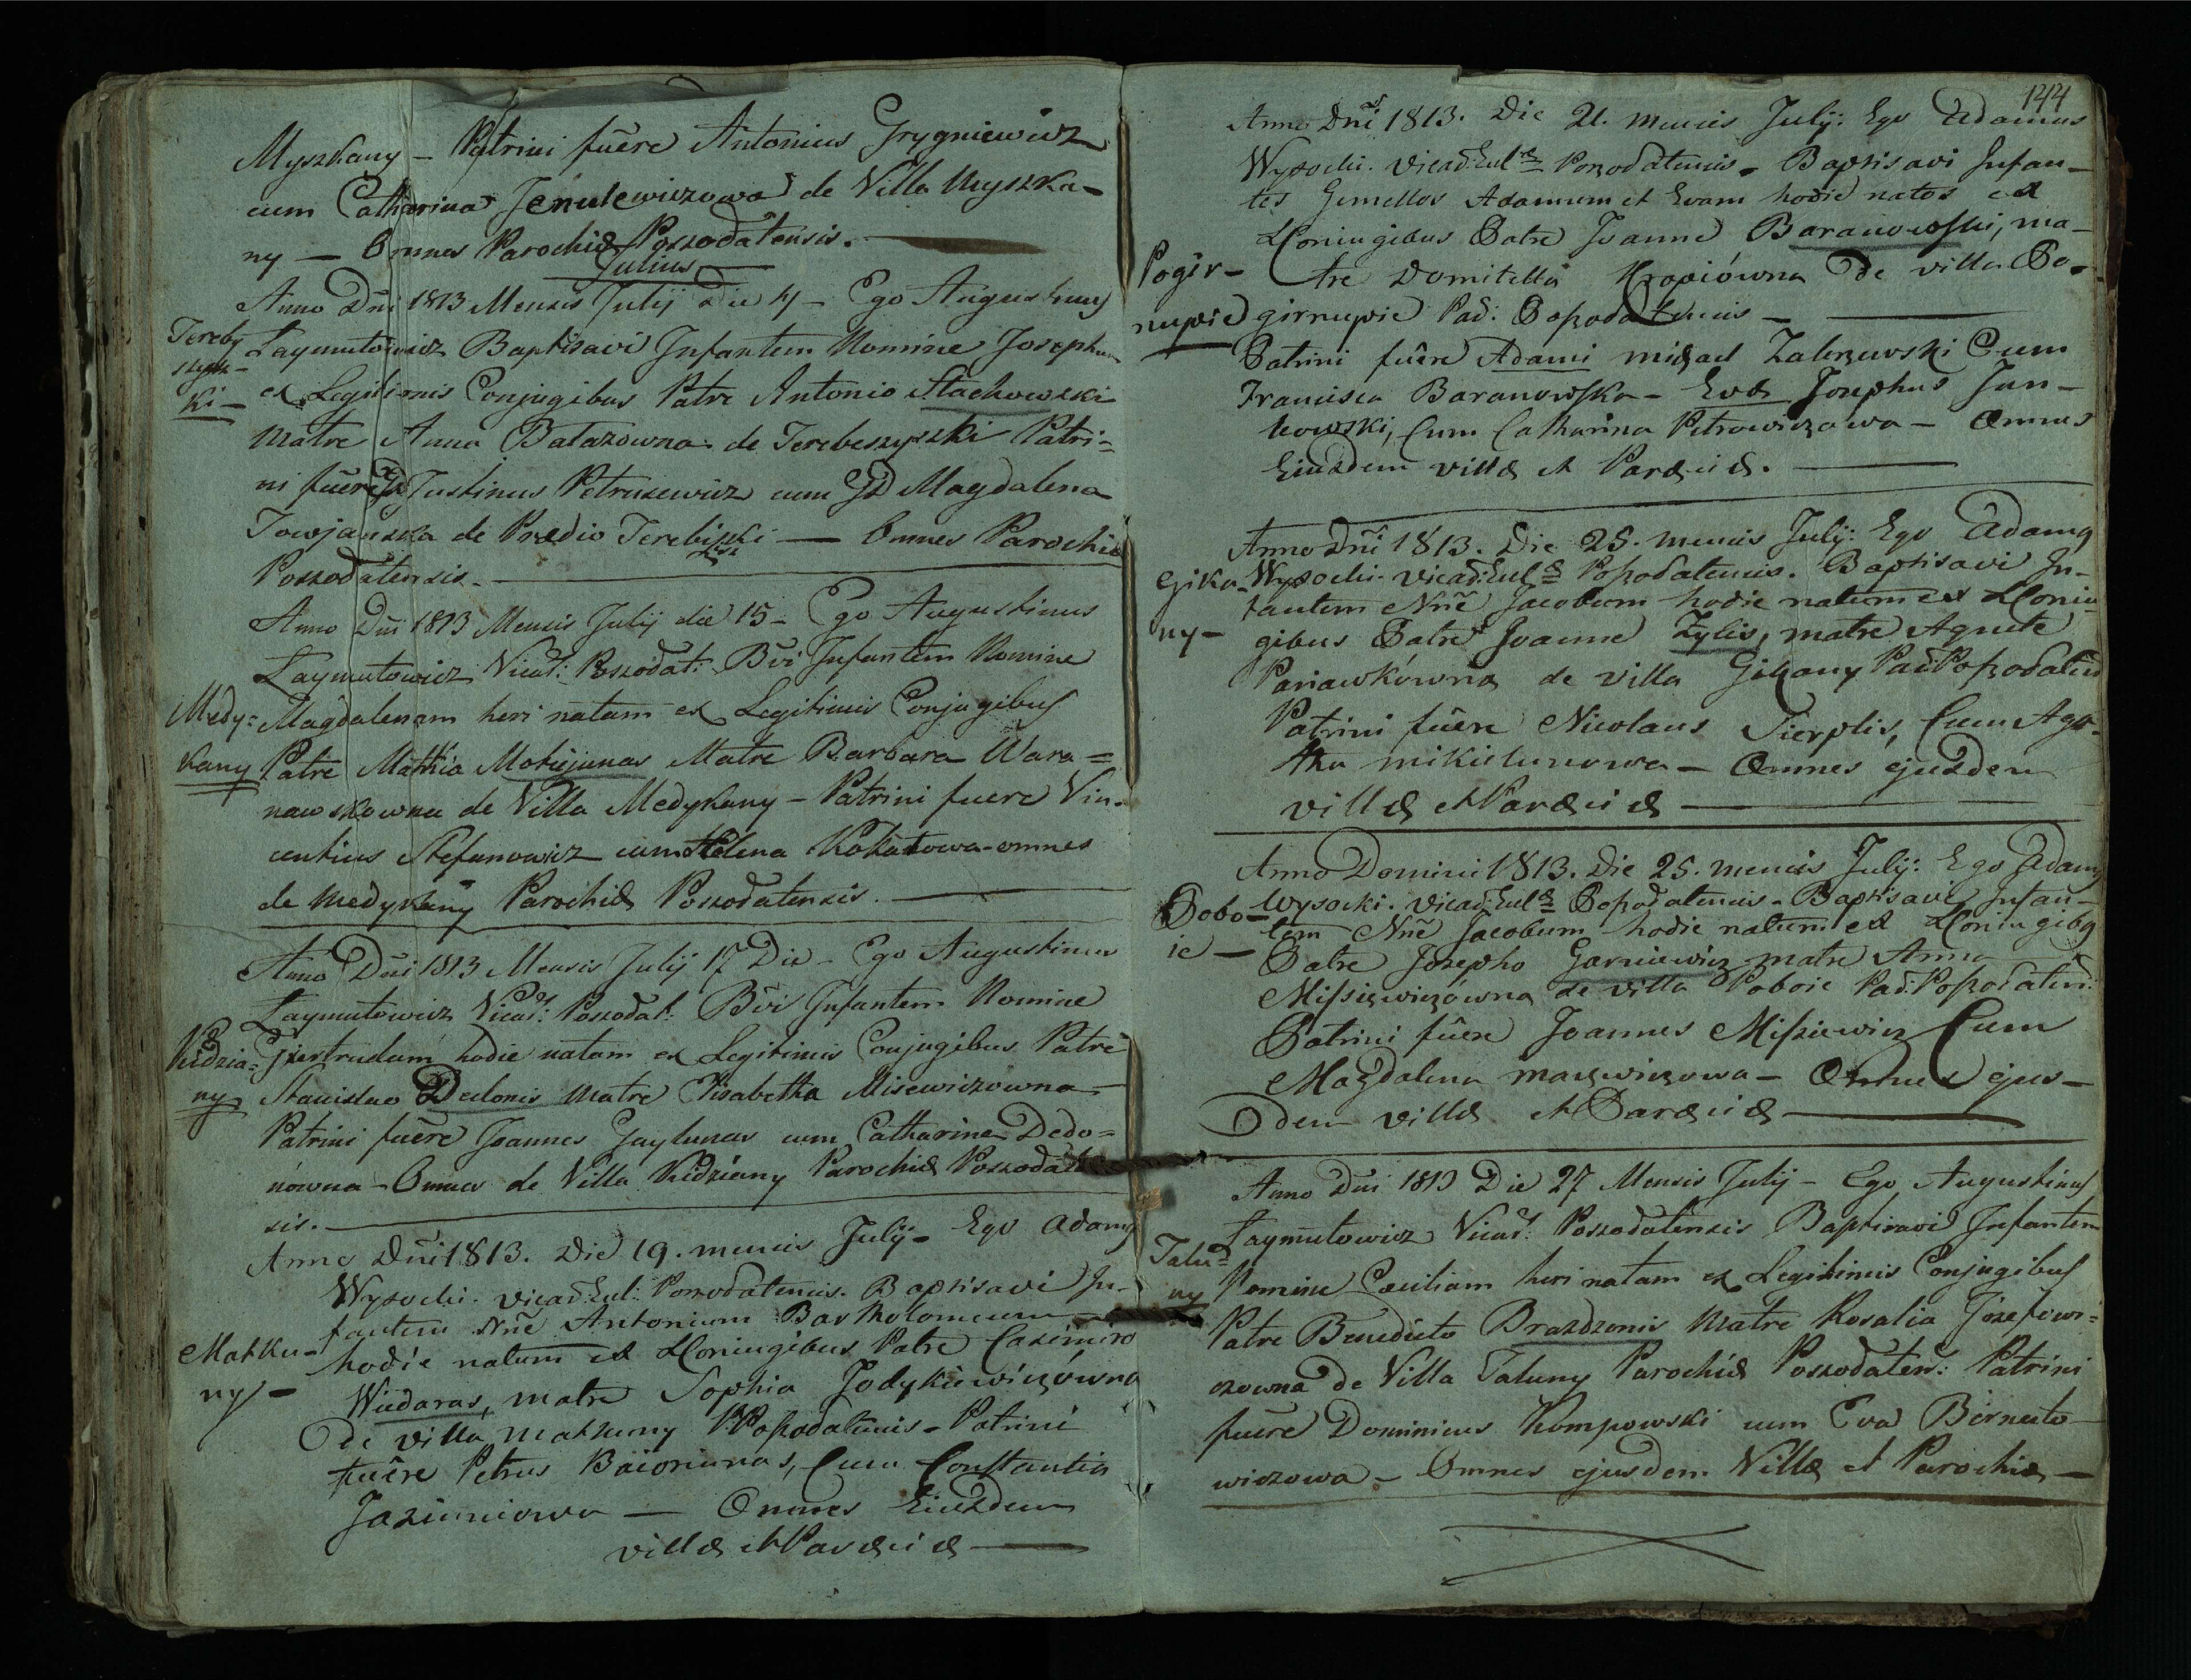 Myszkany – Patrini fuêre Antonius Grygniewicz
cum Catharina Jenulewiczowa de Villa Myszka-
ny – Omnes Parochiæ Poszodatensis.
Julius
Anno Dni 1813 Mensis Julij Die 4 – Ego Augustinus
Tereby
szysz-
ki –
Laymutowicz Baptisavi Infantem Nomine Josephum
ex Legitimis Conjugibus Patre Antonio Stachowski
Matre Anna Balazowna de Terebeszyszki Patri=
ni fuêre Justinus Petrusewicz cum Magdalena
Towjanska de Prædio Terebiszki – Omnes Parochiæ
Poszodatensis.
Anno Dni 1813 Mensis Julij die 15 – Ego Augustinus
Laymutowicz Vicad: Poszodat: Bvi Infantem Nomine
Medy=
kany
Magdalenam heri natam ex Legitimis Conjugibus
Patre Mathia Motiejunas Matre Barbara Wara=
nawskowna de Villa Medykany – Patrini fuere Vin-
centius Stefanowicz cum Helena Kokatowa – omnes
de Medykany Parochiæ Poszodatensis.
Anno Dni 1813 Mensis Julij 17 Die – Ego Augustinus
Laymutowicz Vicad: Poszodat: Bvi Infantem Nomine
Kidzia=
ny
Giertrudam hodie natam ex Legitimis Conjugibus Patre
Stanislao Dedonis Matre Elisabetha Misewiczowna –
Patrini fuêre Joannes Gaylunas cum Catharina Dedo=
nowna – Omnes de Villa Kidziany Parochiæ Poszodaten
sis.
Anno Dni 1813. Die 19. mensis Julij – Ego Adamus
Wysocki. Vicad: Eul: Poszodatensis. Baptisavi In-
fantem Nne Antonium Bartholomeum
Matku-
ny –
hodie natum ex Coniugibus Patre Casimiro
Widaras, matre Sophia Jodykiewiczówna
De villa Matkuny P. Poszodatensis – Patrini
fuêre Petrus Baioriunas, Cum Constantia
Jaziuniowa – Omnes Eiusdem
villæ et Paræciæ –
144
Anno Dni 1813. Die 21. mensis Julij: Ego Adamus
Wysocki. Vicad: Eul Poszodatensis – Baptisavi Infan-
tes Gemellos Adamum et Evam hodie natos ex
Coniugibus Patre Joanne Baranowski, ma-
Pogir-
nupie
tre Domitella Kropiówna De villa Po-
girnupie Pad: Poszodatensis –
Patrini fuêre Adami Michael Zabrzewski Cum
Francisca Baranowska – Evæ Josephus Jan-
kowski, Cum Catharina Petrowiczowa – Omnes
Eiusdem villæ et Paræciæ.
Anno Dni 1813. Die 25. mensis Julij: Ego Adamus
Gika-
ny –
Wysocki. Vicad: Eul Poszodatensis. Baptisavi In-
fantem Nne Jacobum hodie natum ex Coniu-
gibus Patre Joanne Zylis, matre Agnete
Pariawkówna de villa Gikany Pad: Poszodaten
Patrini fuêre Nicolaus Cierplis, Cum Aga-
tha Mikielunowa – Omnes ejusdem
villæ et Paræciæ –
Anno Domini 1813. Die 25. mensis Julij: Ego Adamus
Pobo-
ie –
Wysocki. Vicad: Eul Poszodatensis – Baptisavi Infan-
tem Nne Jacobum hodie natum ex Coniugibus
Patre Josepho Garniewicz matre Anna
Missiewiczówna de villa Poboie Pad: Poszodaten:
Patrini fuêre Joannes Missiewicz Cum
Magdalena Macewiczowa – Omnes ejus-
dem villæ et Paræciæ –
Anno Dni 1813 Die 27 Mensis Julij – Ego Augustinus
Laymutowicz Vicad: Poszodatensis Baptisavi Infantem
Talu=
ny
Nomine Cæciliam heri natam ex Legitimis Conjugibus
Patre Benedicto Brazdzonis Matre Rosalia Jozefowi=
czowna de Villa Taluny Parochiæ Poszodaten: Patrini
fuere Dominicus Kompowski cum Eva Birnato
wiczowa – Omnes ejusdem Villæ et Parochiæ –